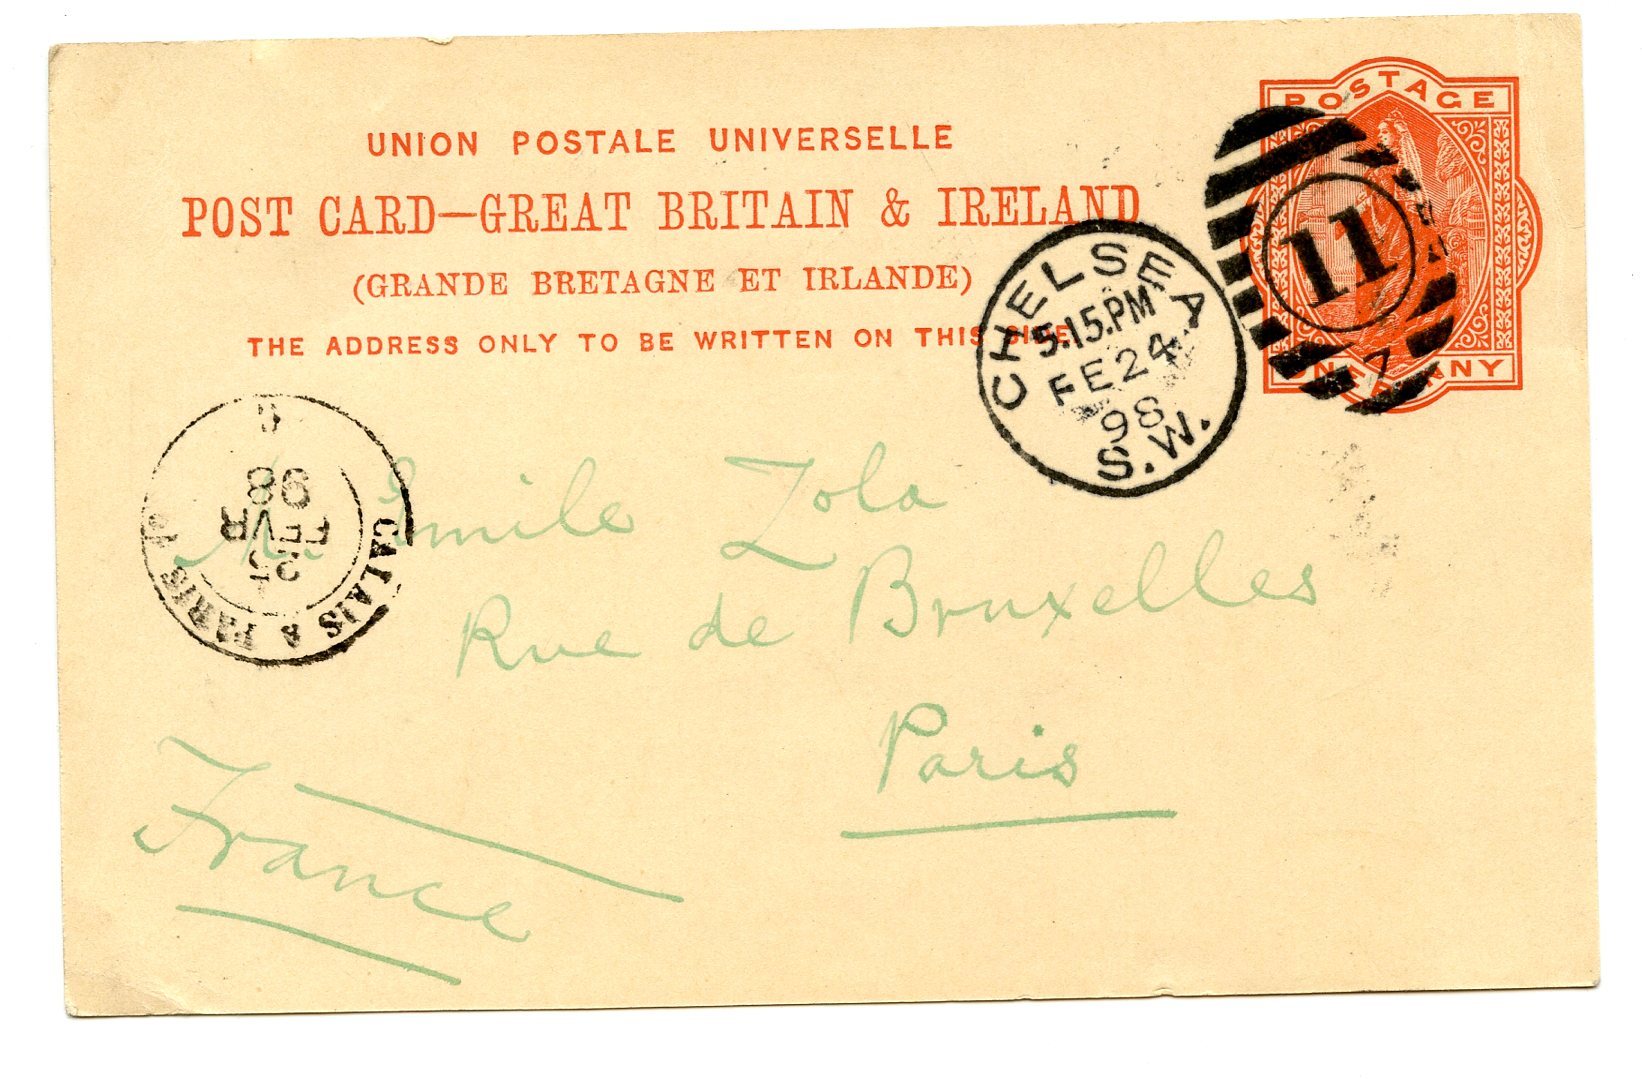 UNION POSTALE UNIVERSELLE
POST CARD—GREAT BRITAIN & IRELAND
(GRANDE BRETAGNE ET IRLANDE)
THE ADDRESS ONLY TO BE WRITTEN ON THIS SIDE
POSTAGE
ONE PENNY
11
CHELSEA
5.15.PM
FE 24
98
S.W.
CALAIS A PARIS
FEVR
98
M. Emile Zola
Rue de Bruxelles
Paris
France